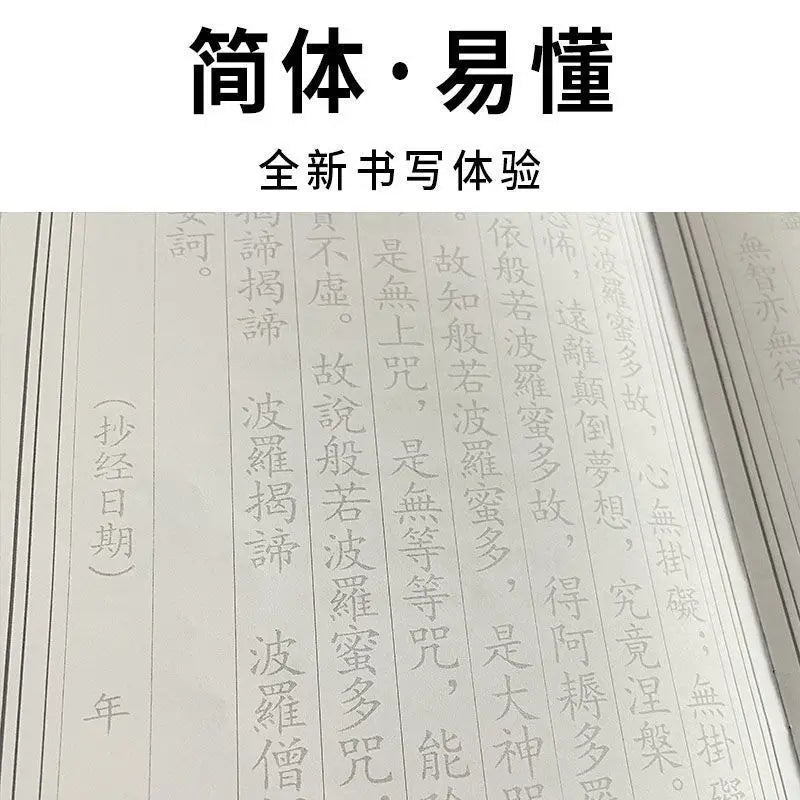 简体·易懂
全新书写体验
無智亦無得
若波羅蜜多故，心無掛礙；無掛礙
恐怖，遠離顛倒夢想，究竟涅槃。
依般若波羅蜜多故，得阿耨多羅
。故知般若波羅蜜多，是大神咒
，是無上咒，是無等等咒，能除
實不虛。故說般若波羅蜜多咒，
揭諦揭諦 波羅揭諦 波羅僧
訶。
（抄经日期） 年